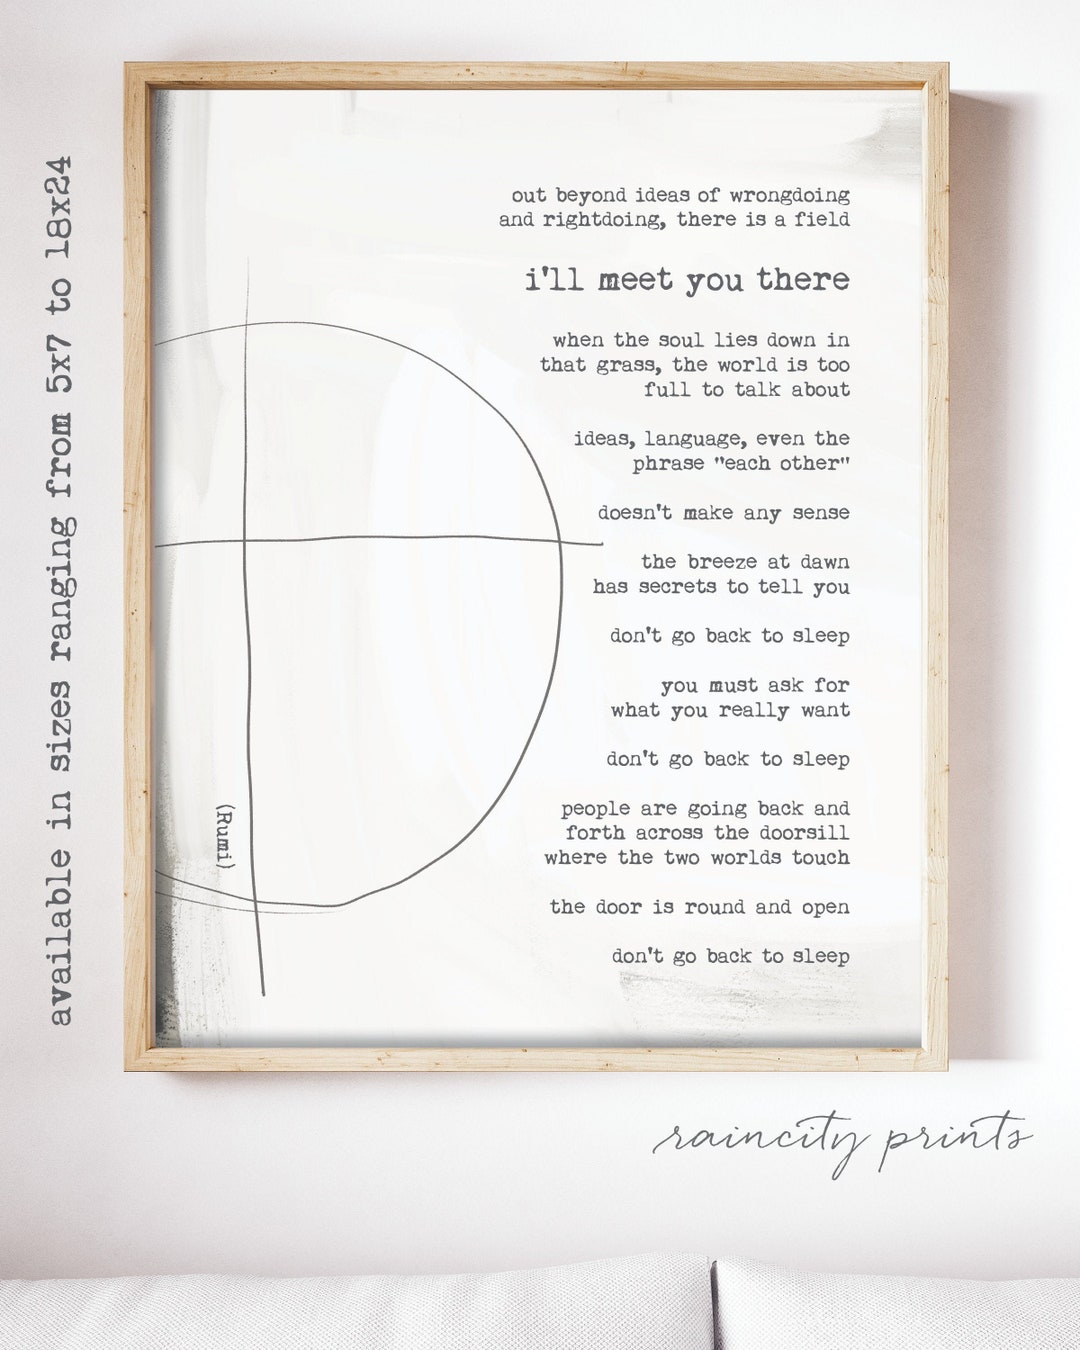 available in sizes ranging from 5x7 to 18x24
out beyond ideas of wrongdoing
and rightdoing, there is a field
i'll meet you there
when the soul lies down in
that grass, the world is too
full to talk about
ideas, language, even the
phrase "each other"
doesn't make any sense
the breeze at dawn
has secrets to tell you
don't go back to sleep
you must ask for
what you really want
don't go back to sleep
people are going back and
forth across the doorsill
where the two worlds touch
the door is round and open
don't go back to sleep
(Rumi)
raincity prints